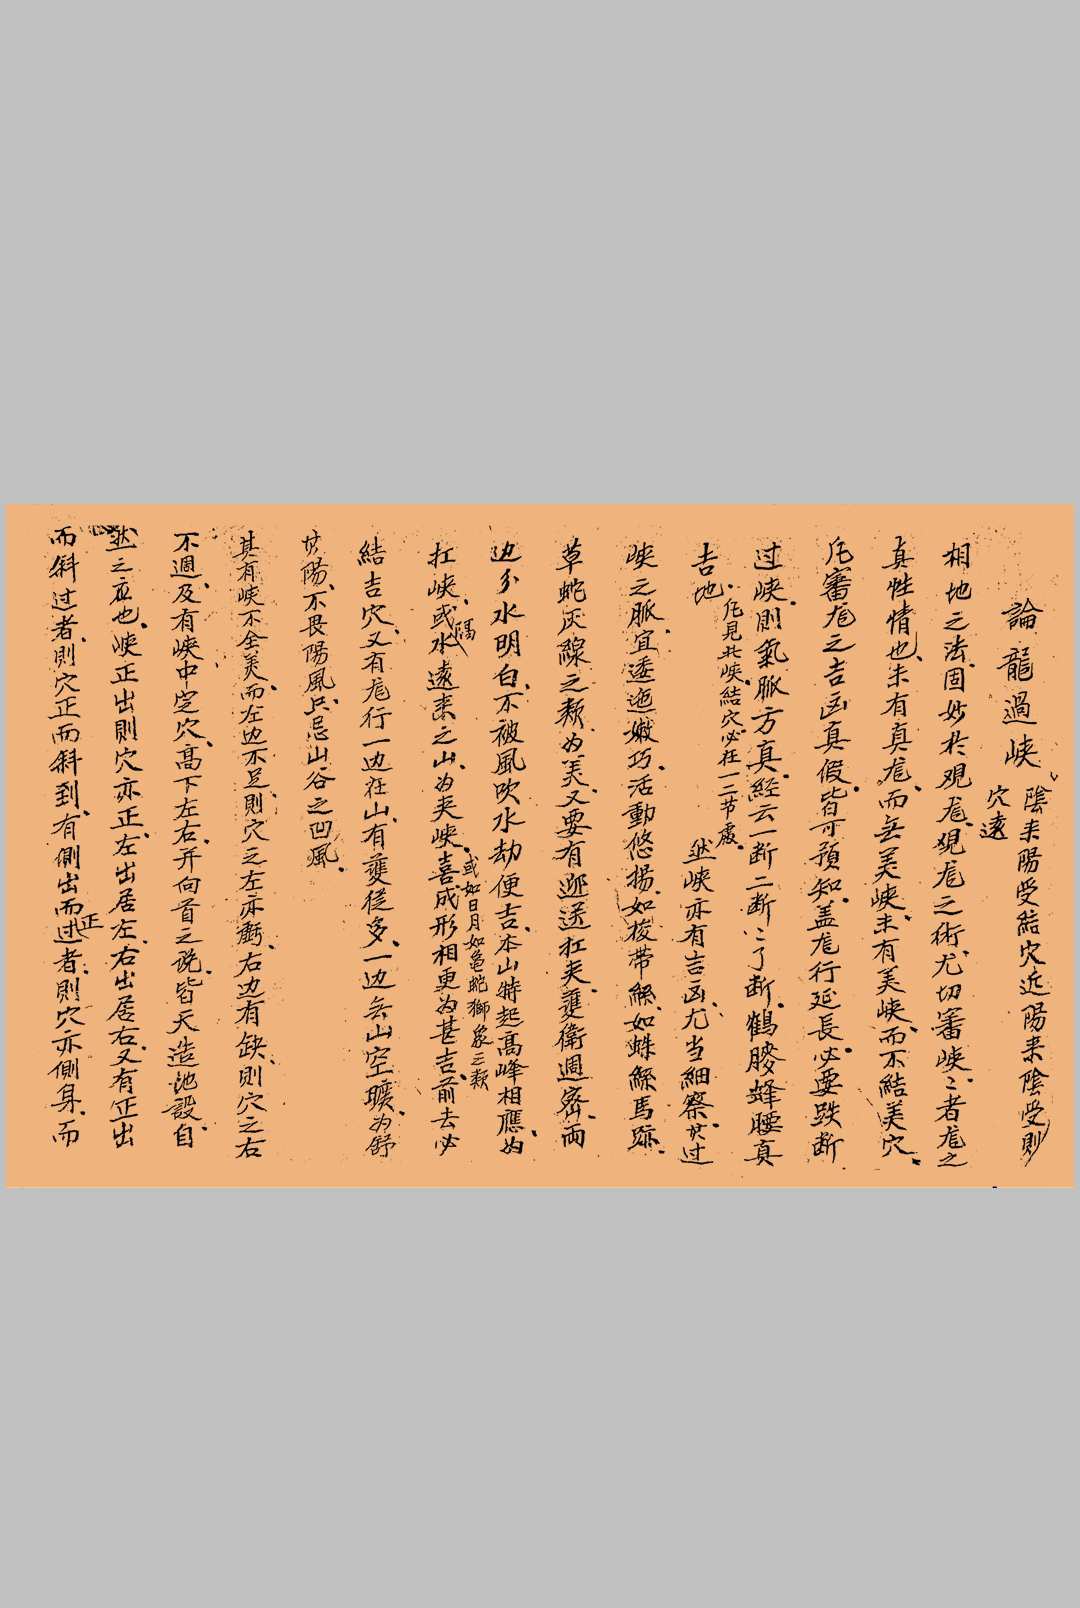 論龍過峽
陰来陽受結穴近陽来陰受則
穴遠
相地之法固妙於覌龙覌龙之術尤切審峽〻者龙之
真性情也未有真龙而無美峽未有美峽而不結美穴
凡審龙之吉凶真假皆可預知盖龙行延長必要跌断
过峽則氣脈方真経云一断二断〻了断鶴膝蜂腰真
吉地
凡見此峽結穴必在一二节處
然峽亦有吉凶尤当細察其过
峽之脈宜逶迤嫩巧活動悠揚如梭带絲如蛛絲馬跡
草蛇灰線之類为美又要有迎送扛夹護衛週密両
边分水明白不被風吹水劫便吉本山特起高峰相應为
扛峽或水隔遠来之山为夹峽喜成形相更为甚吉前去必
或如日月如龟蛇獅象之類
結吉穴又有龙行一边在山有護從多一边無山空曠为舒
其陽不畏陽風只忌山谷之凹風
其有峽不全美而左边不足則穴之左亦虧右边有缺則穴之右
不週及有峽中定穴高下左右开向首之说皆天造池設自
然之应也峽正出則穴亦正左出居左右出居右又有正出
而斜过者則穴正而斜到有側出而正过者則穴亦側身而